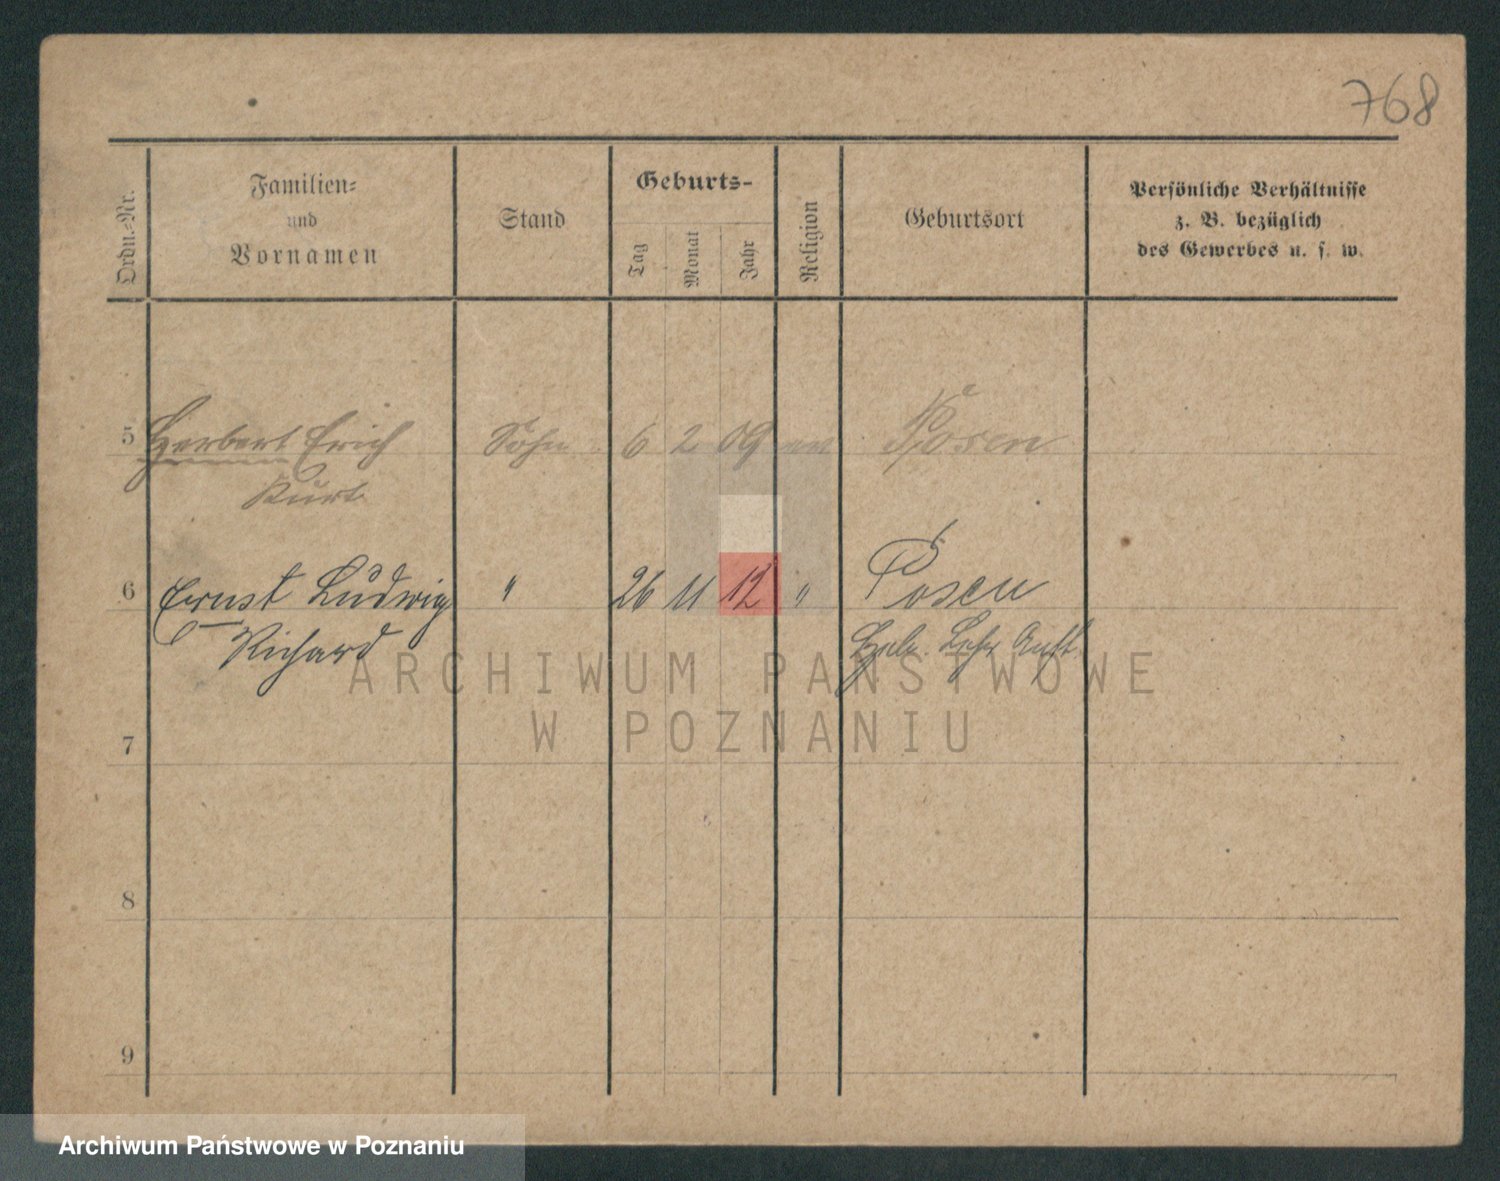 768
Ordn.-Nr.
Familien-
und
Vornamen
Stand
Geburts-
Tag
Monat
Jahr
Religion
Geburtsort
Persönliche Verhältnisse
z. B. bezüglich
des Gewerbes u. s. w.
5 Herbert Erich Sohn 6 2 09 Posen
Kurt
6 Ernst Ludwig " 26 11 12 " Posen
Richard
ARCHIWUM PAŃSTWOWE
W POZNANIU
7
8
9
Archiwum Państwowe w Poznaniu